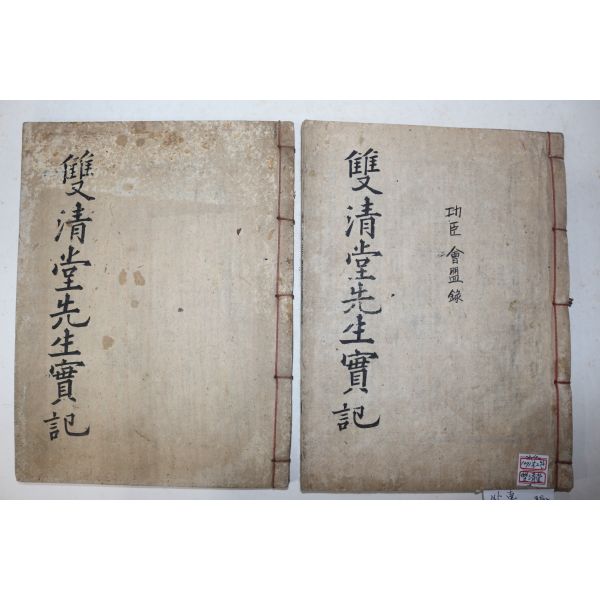 雙清堂先生實記
雙清堂先生實記
功臣 會盟錄